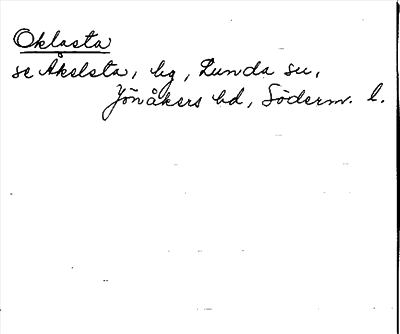 Oklasta
se Åkelsta, bg, Lunda sn,
Jönåkers hd, Söderm. l.